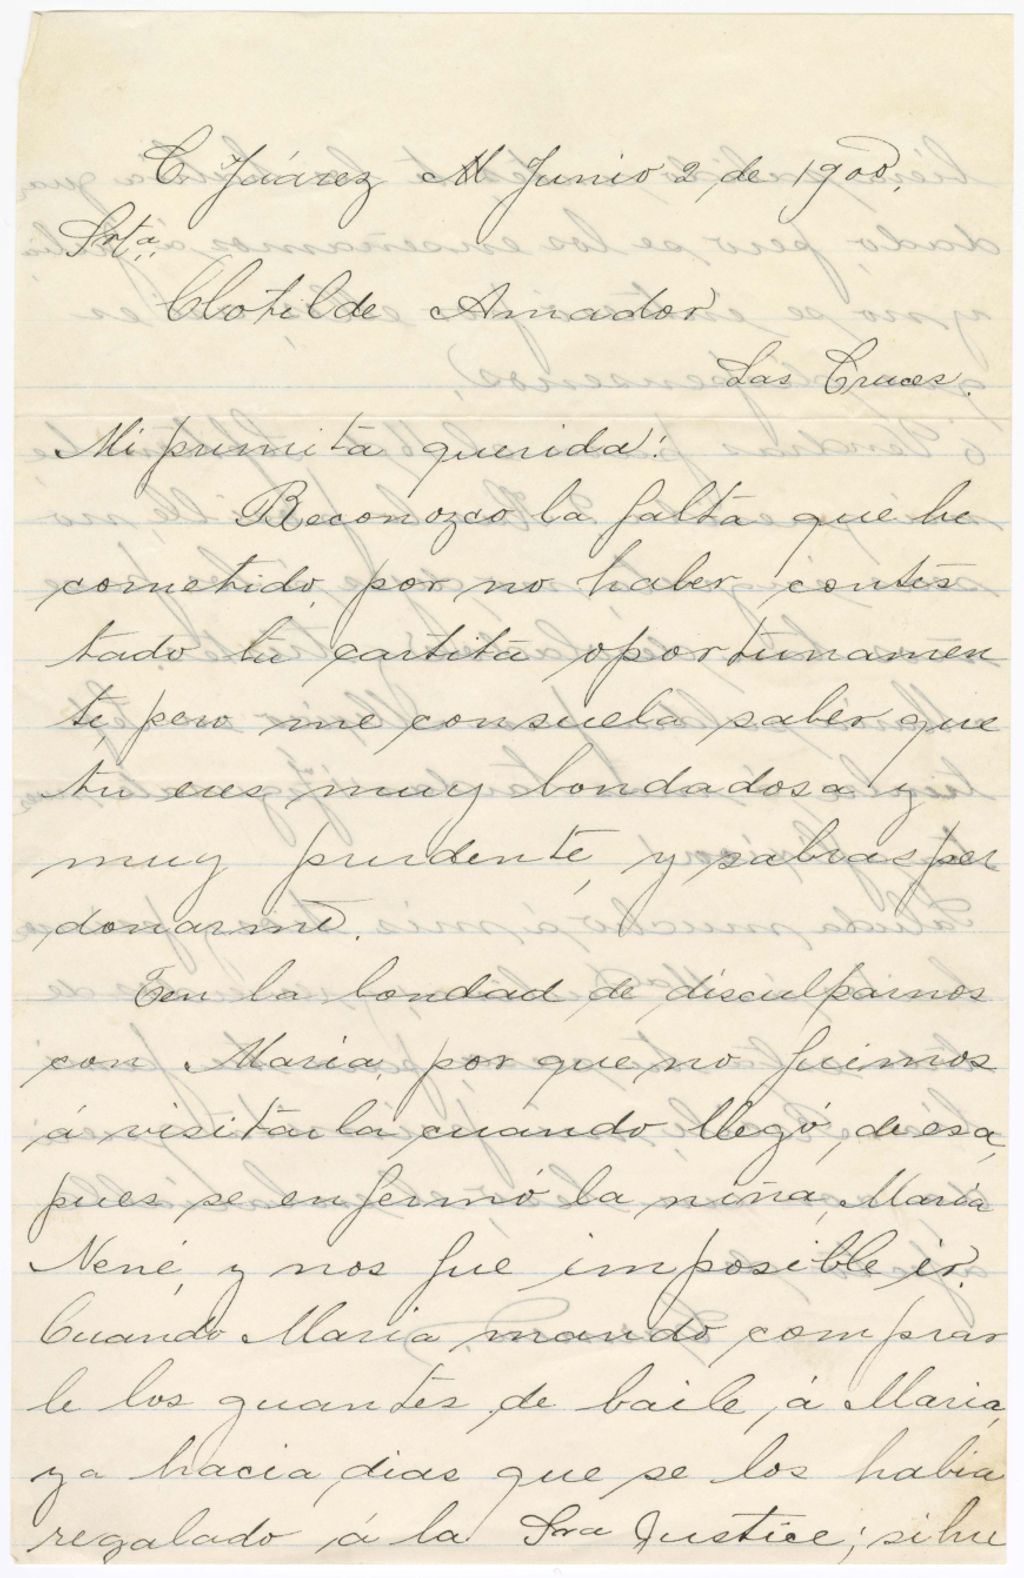 C. Juárez M Junio 2 de 1900.
Srta.
Clotilde Amador
Las Cruces.
Mi primita querida:
Reconozco la falta que he
cometido, por no haber contes
tado tu cartita oportunamen
te, pero me consuela saber que
tu eres muy bondadosa y
muy prudente, y sabras per
donarme.
Ten la bondad de disculparnos
con Maria, por que no fuimos
á visitarla cuando llegó, de esa,
pues se enfermó la niña, Maria
Nené, y nos fue imposible ir.
Cuando Maria mando comprar
le los guantes de baile, á Maria,
ya hacia dias que se los habia
regalado á la Sra Justice; si hu